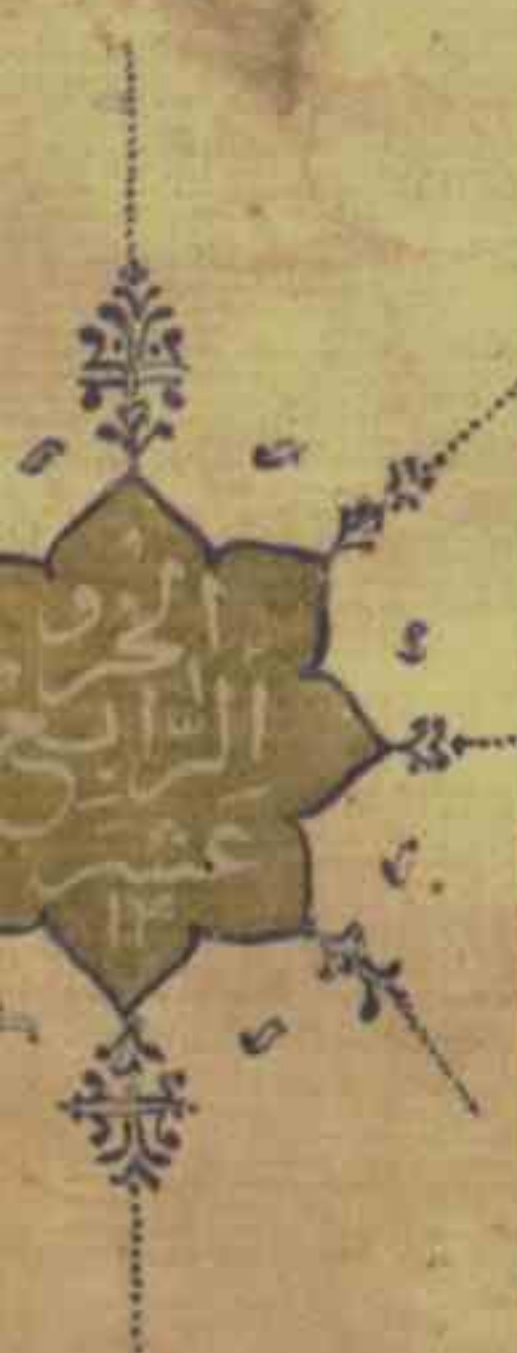 الجزو
الرّابع
عَشَر
۱۴